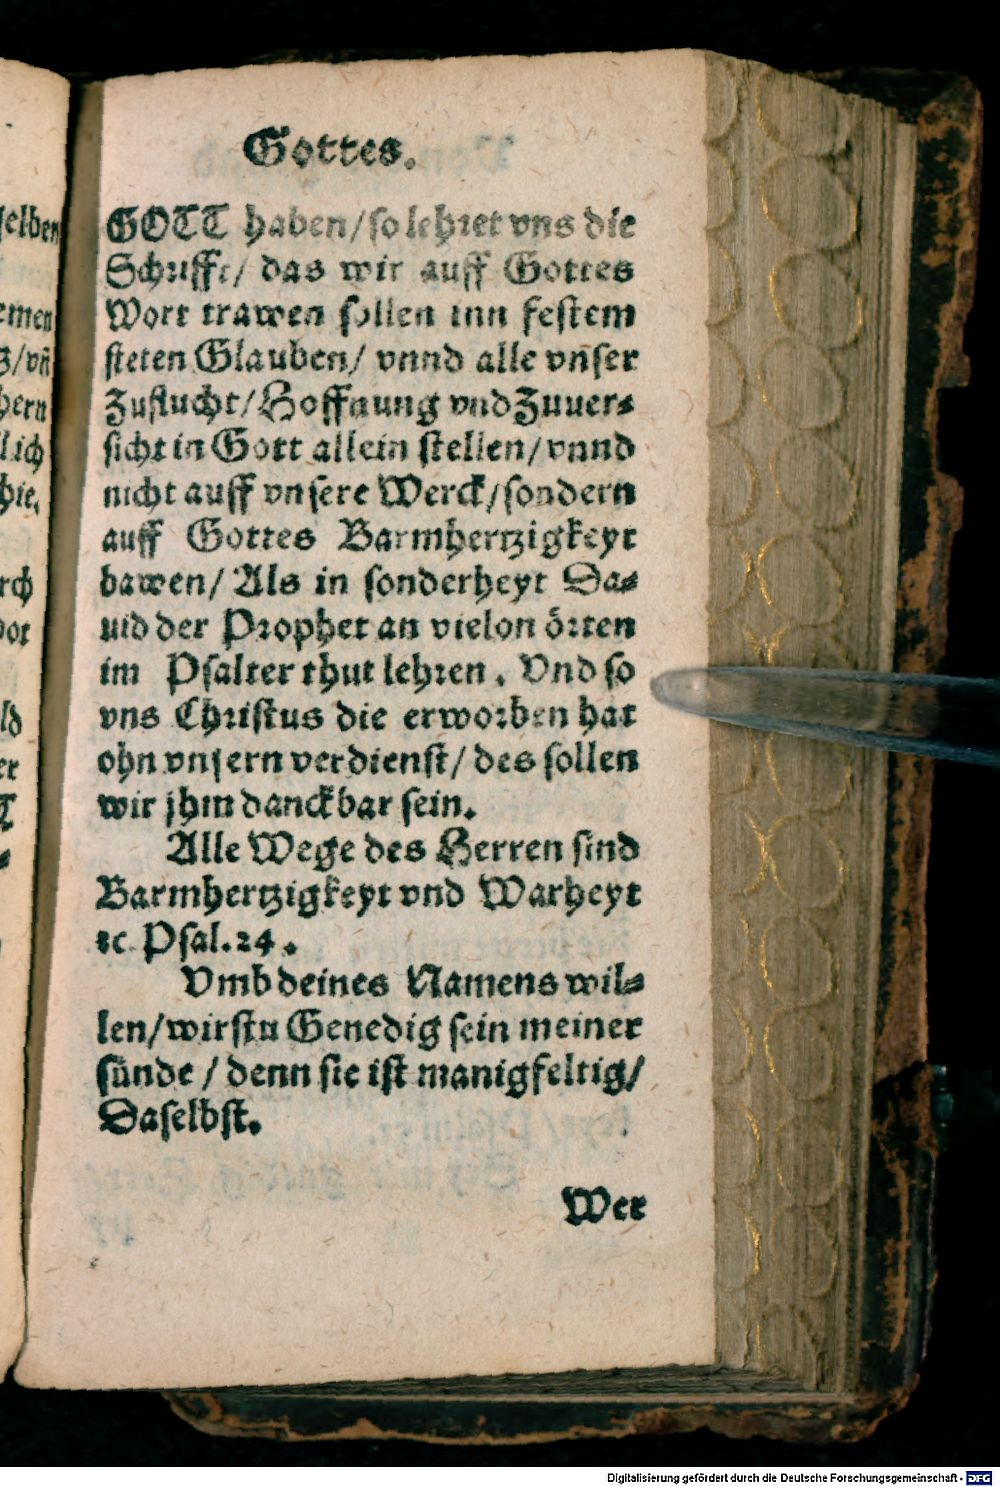 Gottes.
GOTT haben/ so lehret vns die
Schrifft/ das wir auff Gottes
Wort trawen sollen inn festem
steten Glauben/ vnnd alle vnser
Zuflucht/ Hoffnung vnd Zuuer-
sicht in Gott allein stellen/ vnnd
nicht auff vnsere Werck/ sondern
auff Gottes Barmhertzigkeyt
bawen/ Als in sonderheyt Da-
uid der Prophet an vielon örten
im Psalter thut lehren. Vnd so
vns Christus die erworben hat
ohn vnsern verdienst/ des sollen
wir jhm danckbar sein.
Alle Wege des Herren sind
Barmhertzigkeyt vnd Warheyt
ꝛc. Psal. 24.
Vmb deines Namens wil-
len/ wirstu Genedig sein meiner
sünde / denn sie ist manigfeltig/
Daselbst.
Wer
selben
emen
vñ
hern
lich
hie,
rch
vor
ld
er
T
Digitalisierung gefördert durch die Deutsche Forschungsgemeinschaft - DFG